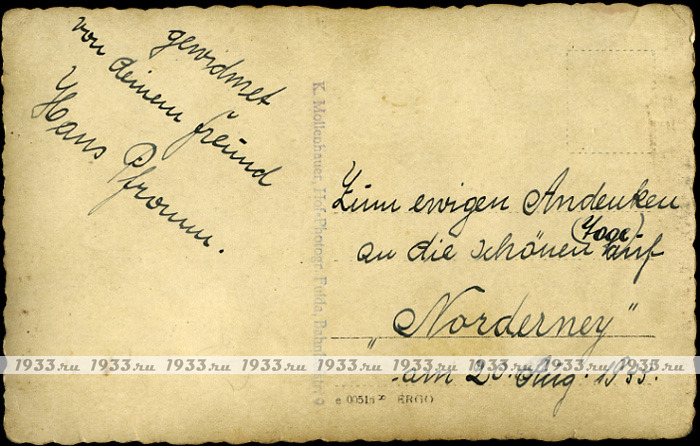 gewidmet
von deinem Freund
Hans Pfromm.
K. Mollenhauer, Hof-Photogr. Fulda,
Zum ewigen Andenken
an die schönen (Tage) auf
„Norderney"
am 20. Aug. 1935.
1933.ru 1933.ru 1933.ru 1933.ru 1933.ru 1933.ru 1933.ru 1933.ru 1933.ru
ERGO